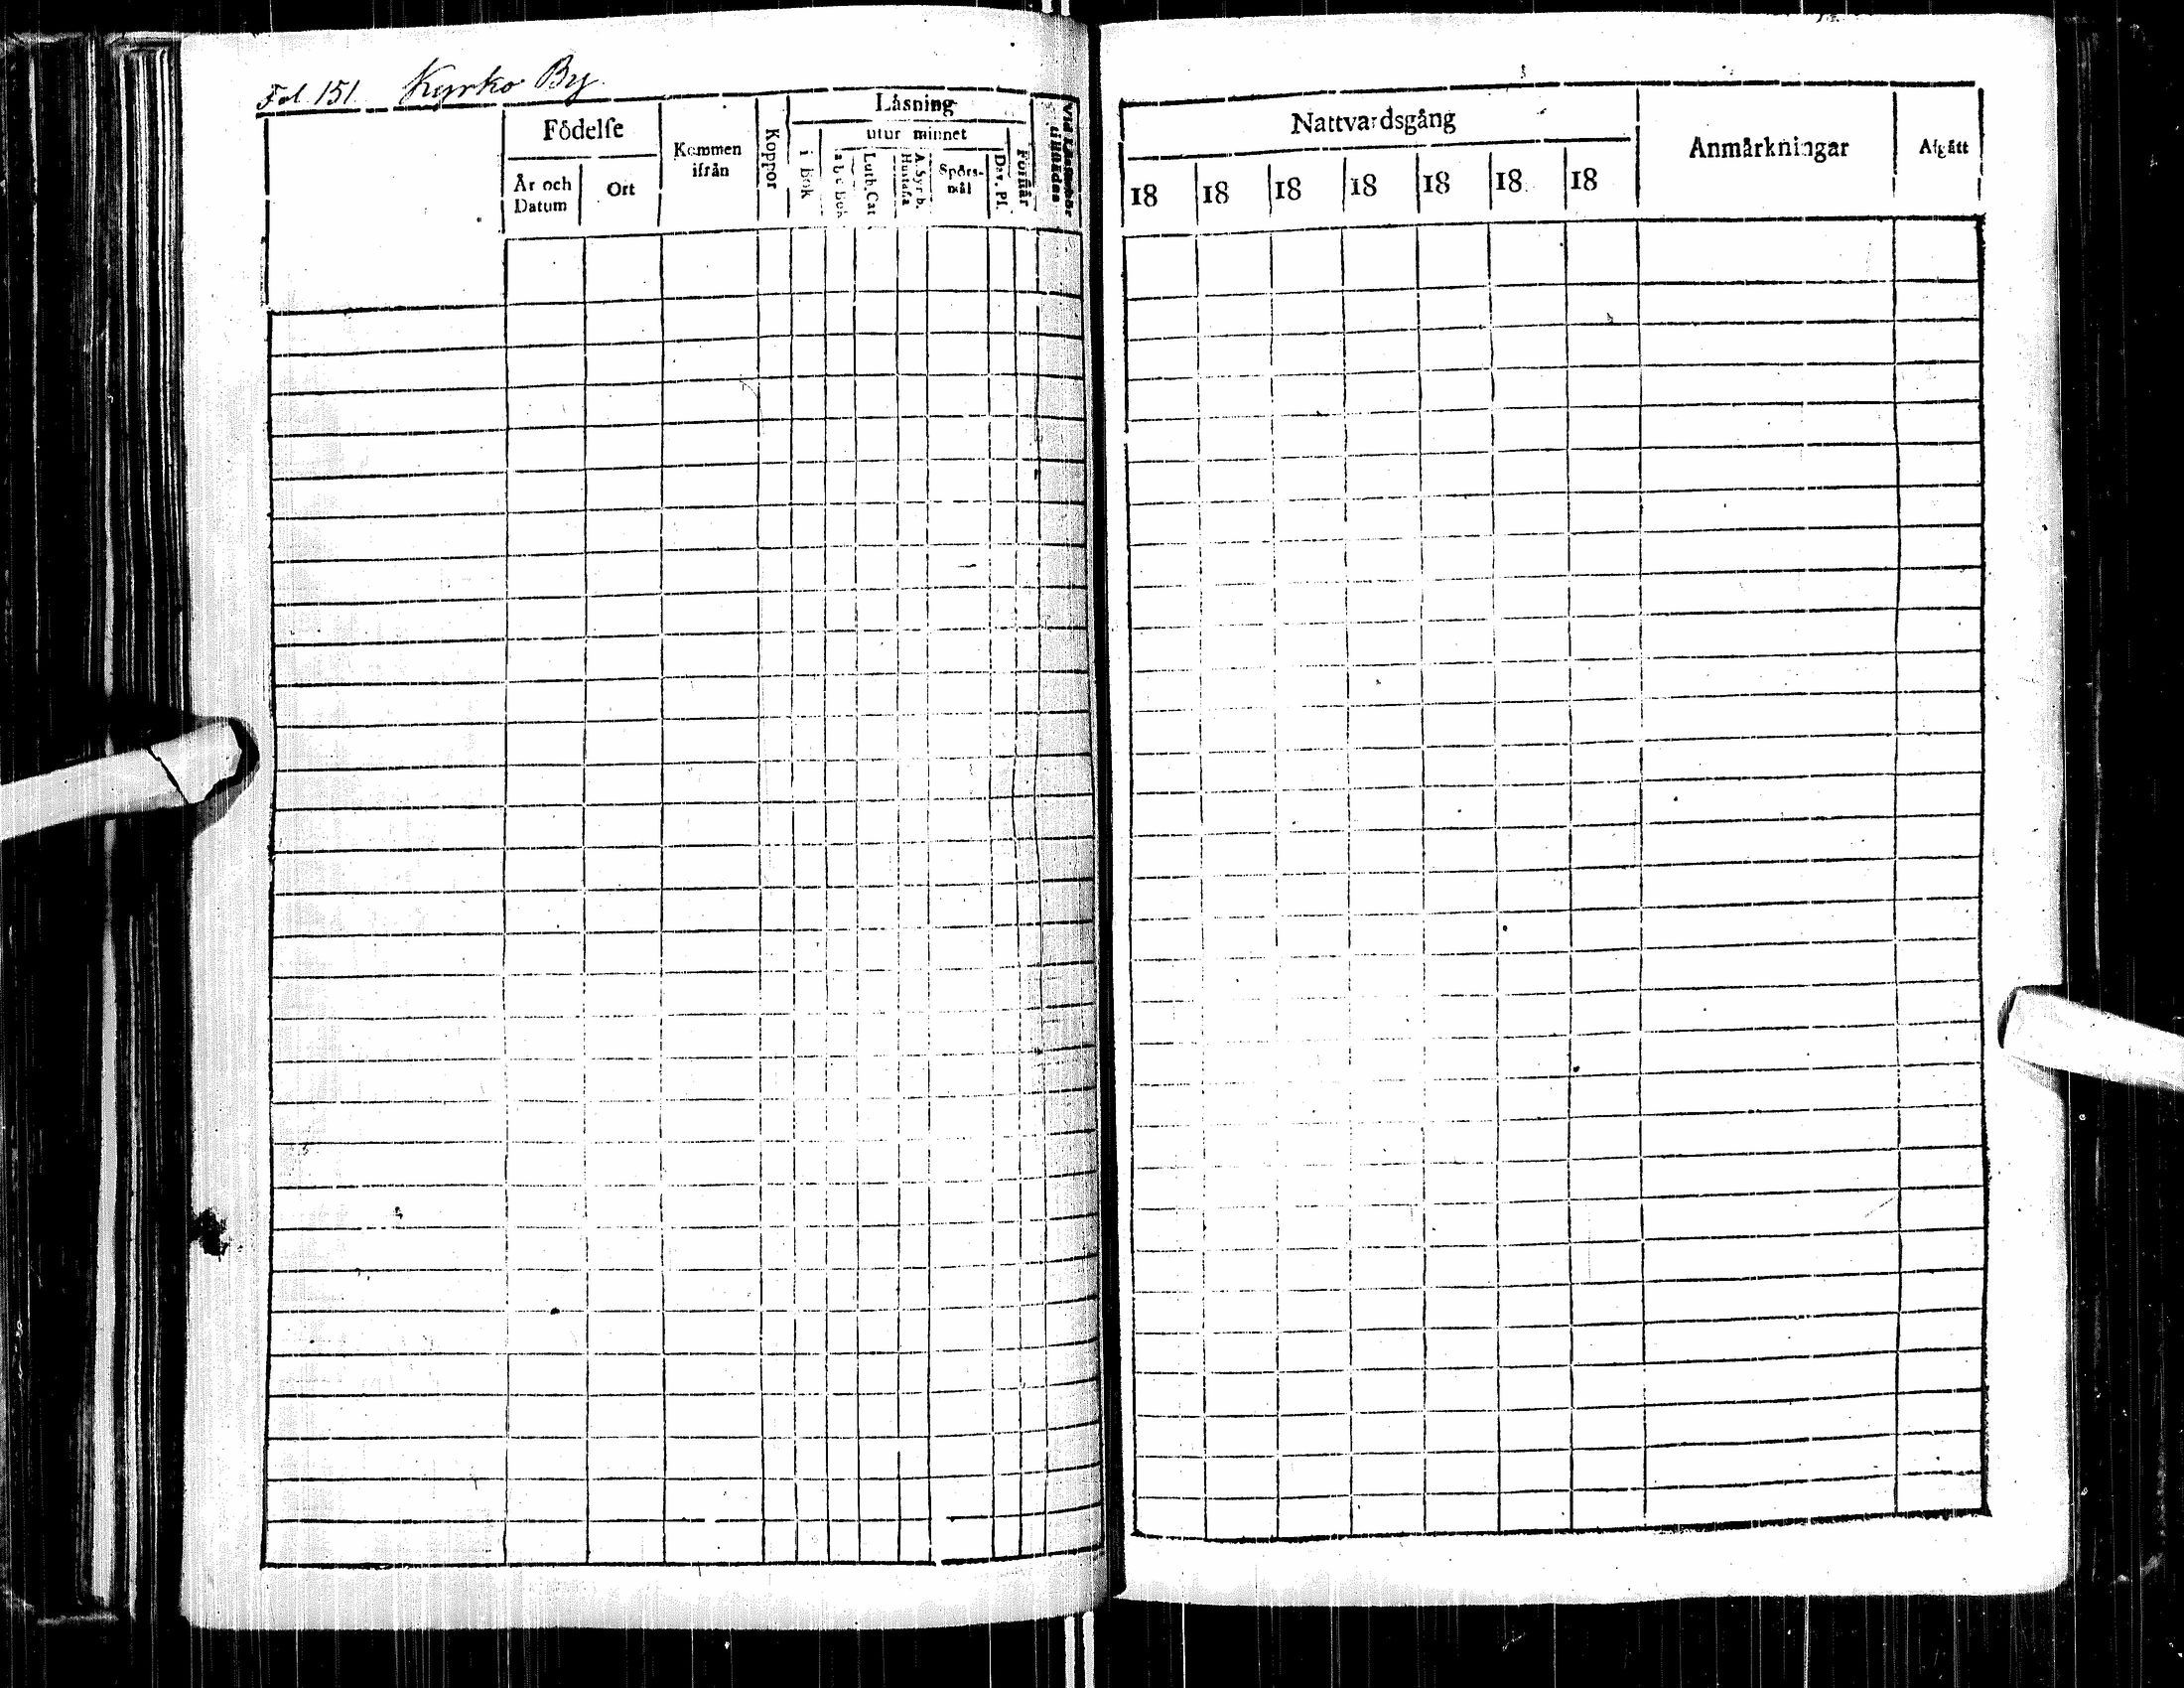 Fol. 151. Kyrko By
Födelse
År och Datum
Ort
Kommen ifrån
Koppor
Läsning
i Bok
utur minnet
a b c Bok
Luth. Cat
A. Syrb. Hustafla
Spörsmål
Dav. Ps.
Förstår
Nattvardsgång
18 18 18 18 18 18 18
Anmärkningar
Afgått